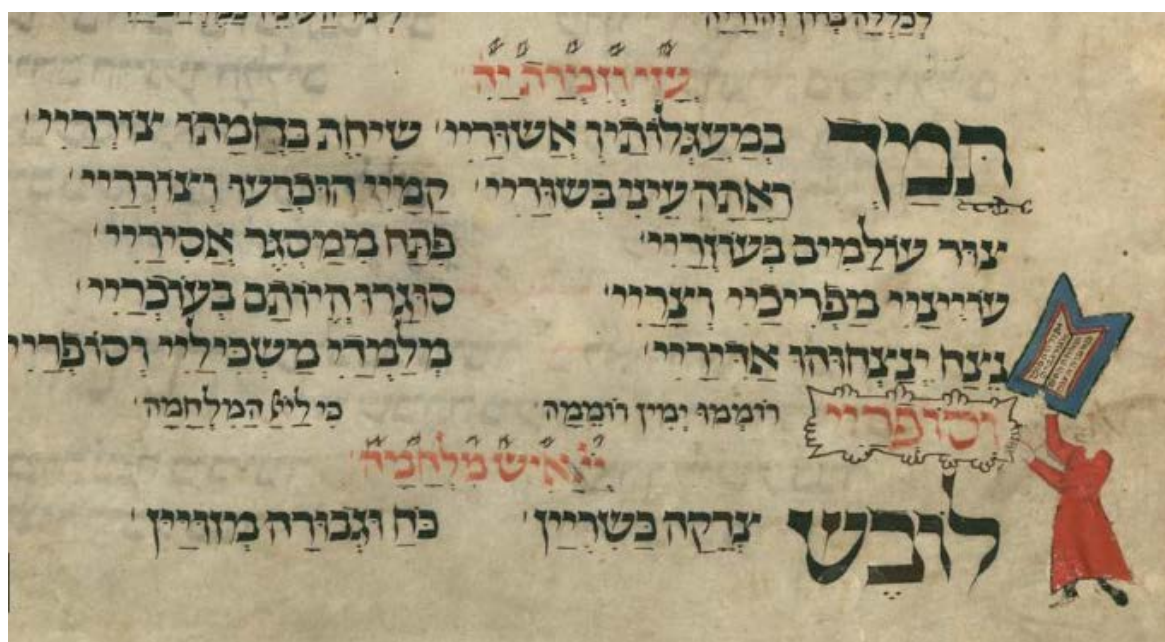 עָזִּי וְזִמְרָת יָהּ
תָּמַךְ בְּמַעְגְּלוֹתָיו אֲשׁוּרַיי שִׁיחֵת בַּחֲמָתוֹ צוֹרְרַיי
רָאֲתָה עֵינִי בְּשׁוּרַיי קָמַיי הוּכְרְעוּ וְצוֹרְרַיי
צוּר עוֹלָמִים בְּעוֹזְרַיי פִּתַּח מִמַּסְגֵּר אֲסִירַיי
עוֹיְיצַיי מַפְרִיכַיי וְצָרַיי סוּגְּרוּ הֱיוֹתָם בְּעוֹכְרַיי
נֶצַח יְנַצְּחוּהוּ אַדִּירַיי מְלַמְּדַי מַשְׂכִּילַיי וְסוֹפְרַיי
וְסוֹפְרַיי רוֹמְמוּ יְמִין רוֹמֵמָה כִּי לַייָ הַמִּלְחָמָה
יְיָ אִישׁ מִלְחָמָה
לוֹבֵשׁ צְדָקָה כַּשִּׁרְיָין כֹּחַ וּגְבוּרָה מְזוּיָּין